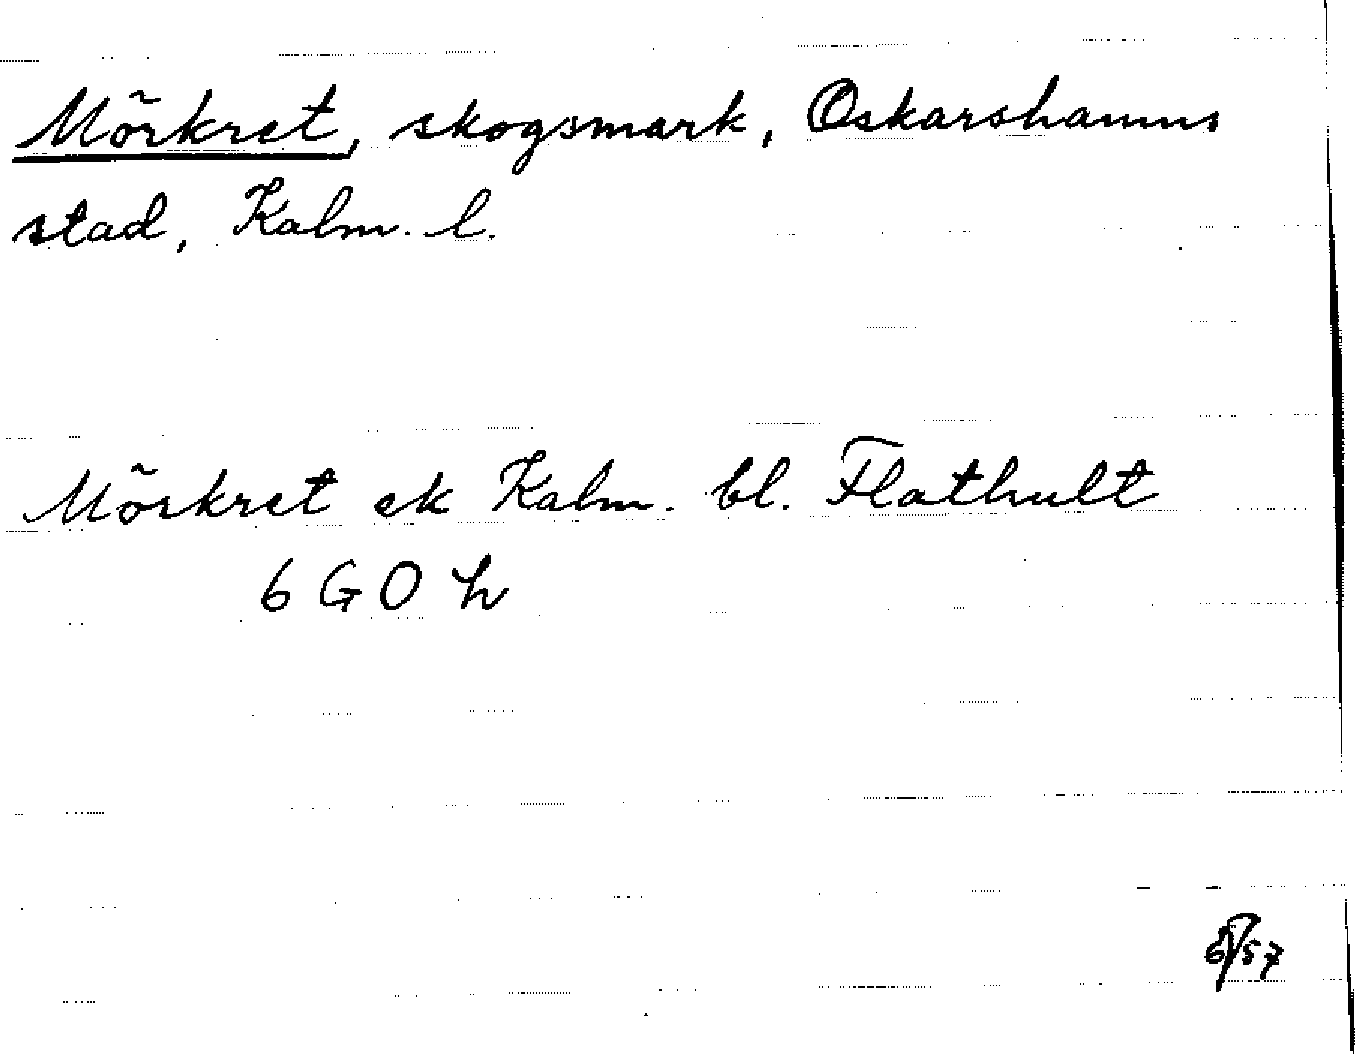 Mörkret, skogsmark, Oskarshamns
stad, Kalm. l.
Mörkret ek Kalm. bl. Flathult
6 G O h